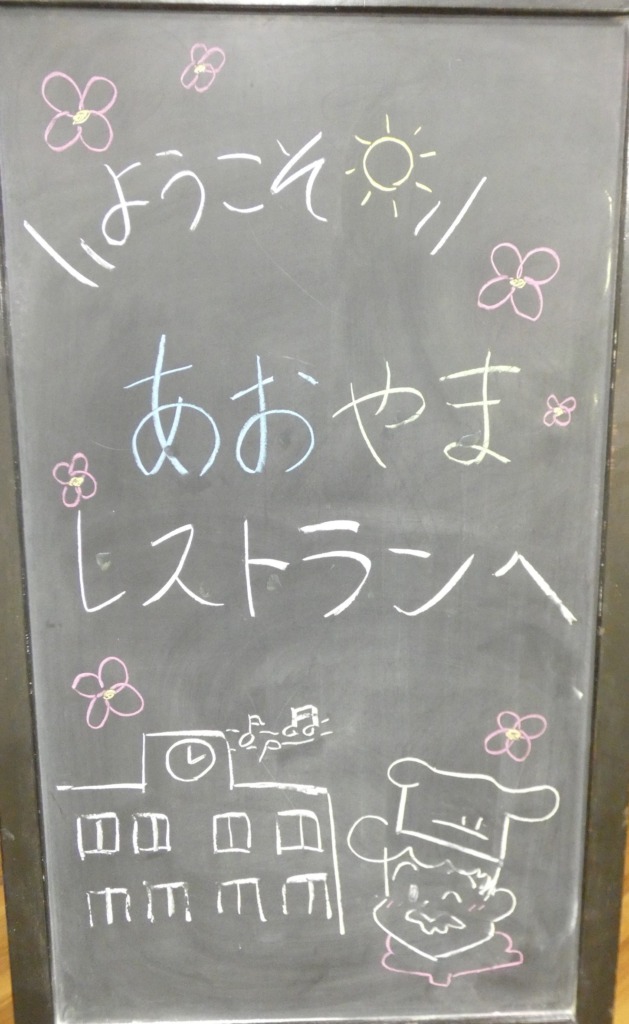 ようこそ
あおやま
レストランへ